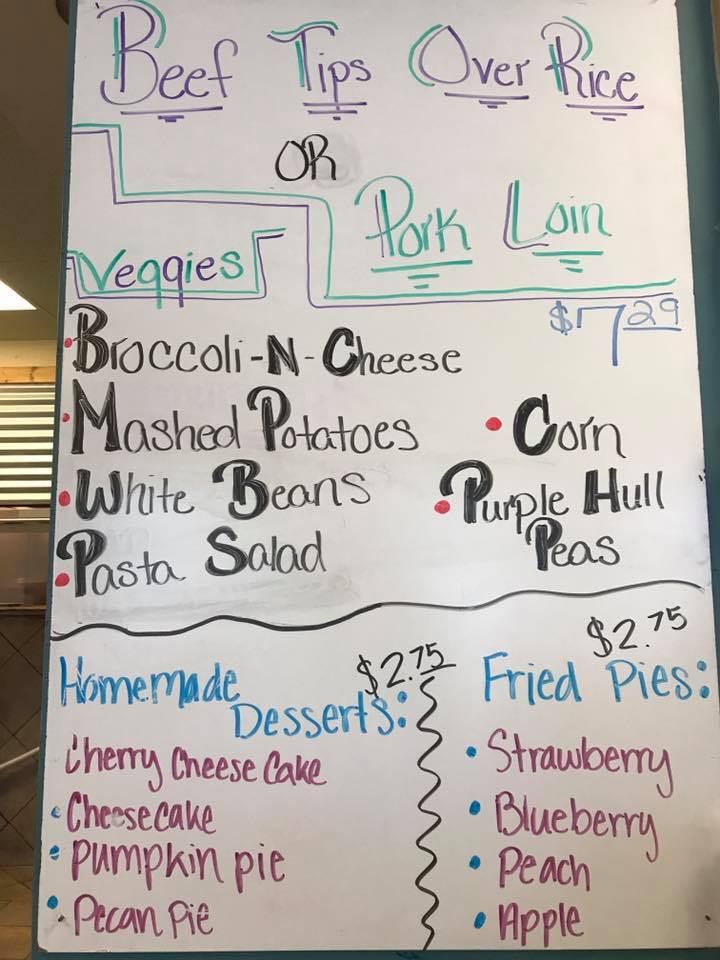 Beef Tips Over Rice
OR
Pork Loin
$7.29
Veggies
• Broccoli-N-Cheese
• Mashed Potatoes
• White Beans
• Pasta Salad
• Corn
• Purple Hull
Peas
$2.75
Homemade
Desserts:
Cherry Cheese Cake
• Cheesecake
• Pumpkin pie
• Pecan Pie
$2.75
Fried Pies:
• Strawberry
• Blueberry
• Peach
• Apple